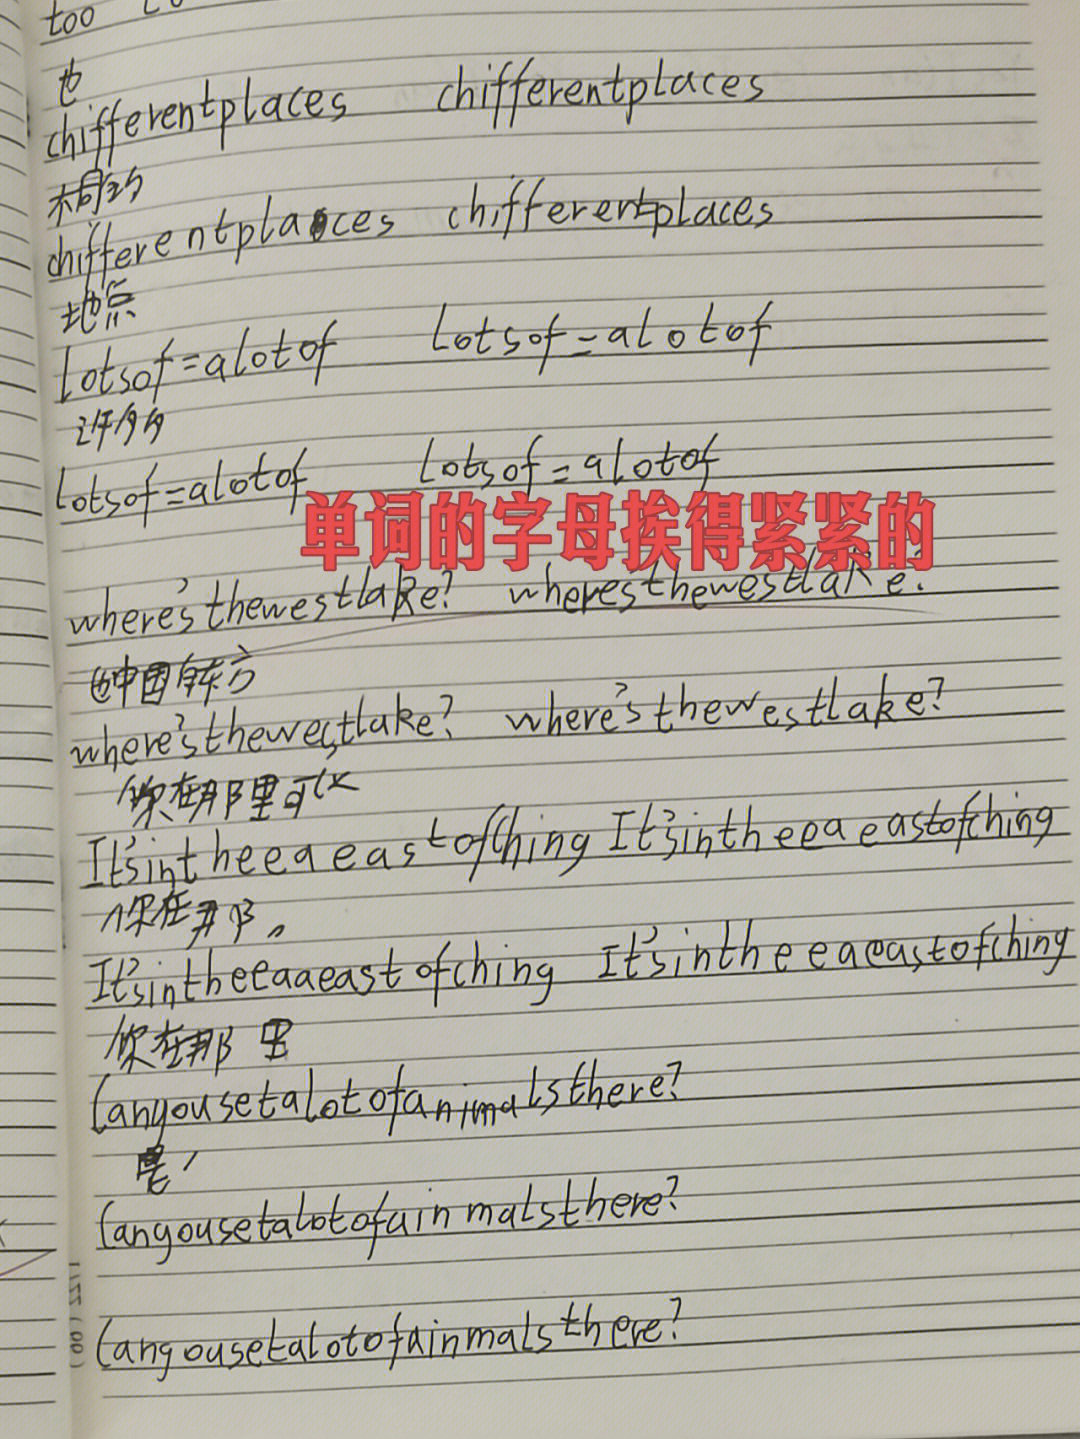 too
也
chifferentplaces chifferentplaces
不同的
chifferentplaces chifferentplaces
地点
Lotsof=alotof Lotsof=alotof
许多
Lotsof=alotof Lotsof=alotof
单词的字母挨得紧紧的
where'sthewestlake? where'sthewestlake?
中国东方
where'sthewestlake? where'sthewestlake?
你在那里可以
It'sintheeaeastofching It'sintheeaeastofching
你在那。
It'sintheeaaeastofching It'sintheeaeastofching
你在那里
Canyousetalotofanimalsthere?
Cangousetalotofainmalsthere?
Cangousetalotofainmalsthere?